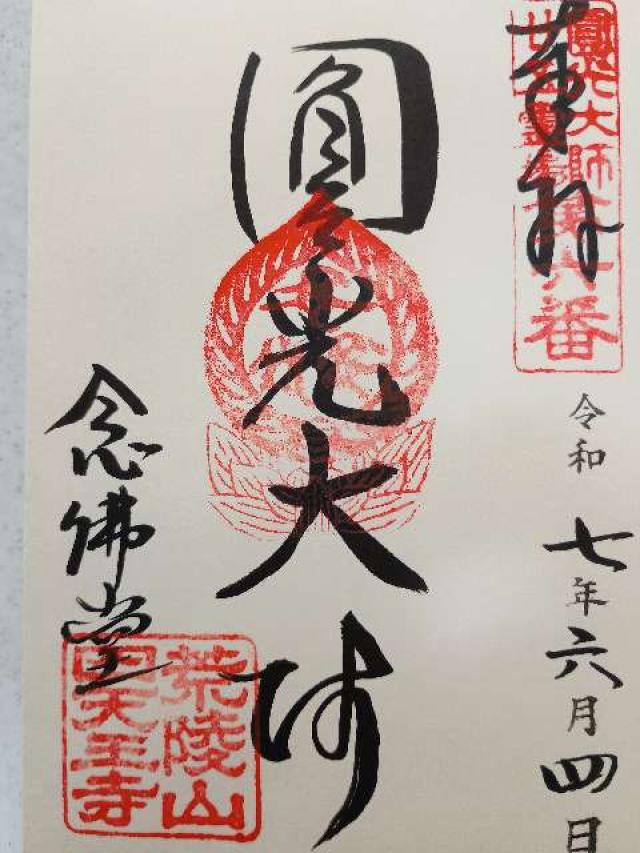 奉拝
圓光大師
廿五霊場第六番
令和七年六月四日
圓光大師
念佛堂
荒陵山
四天王寺